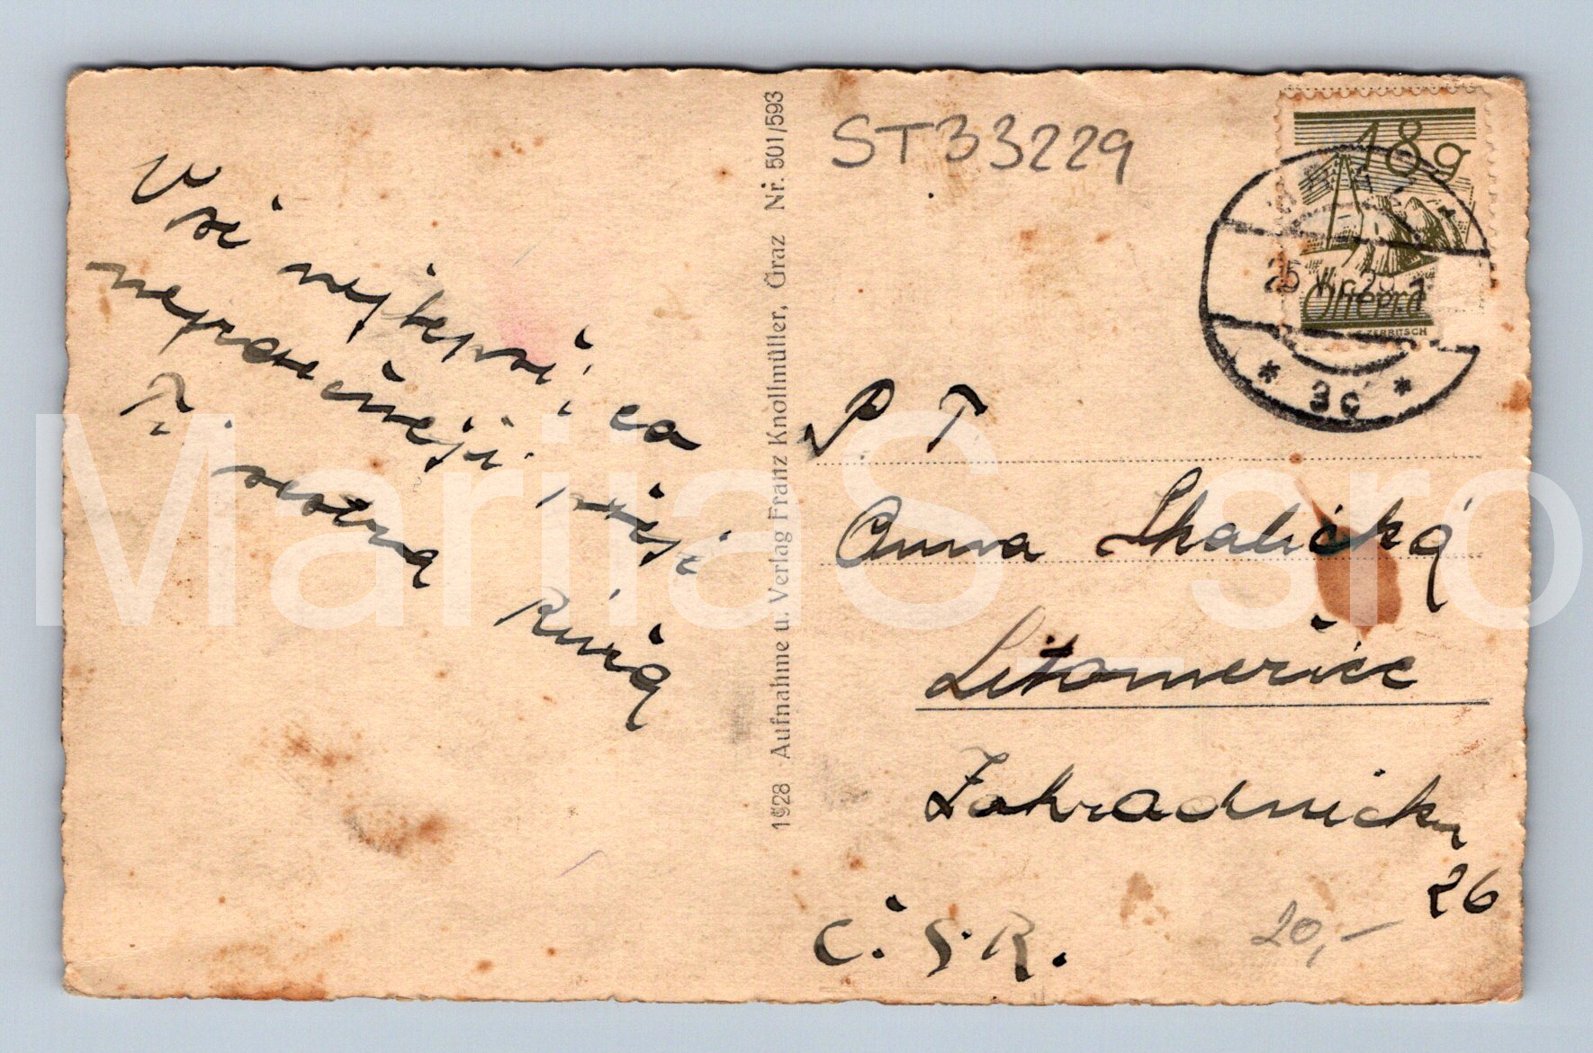 Vši nejlepší co
nejsrdečněji přeji
T. sestra
1928 Aufnahme u. Verlag Franz Knollmüller, Graz Nr. 501/593
ST33229
18g
Österr
ZERRITSCH
3c
P. T
Anna Skalická
Litoměřice
Zahradnick
26
Č.S.R.
20,-
MarijaS_sro